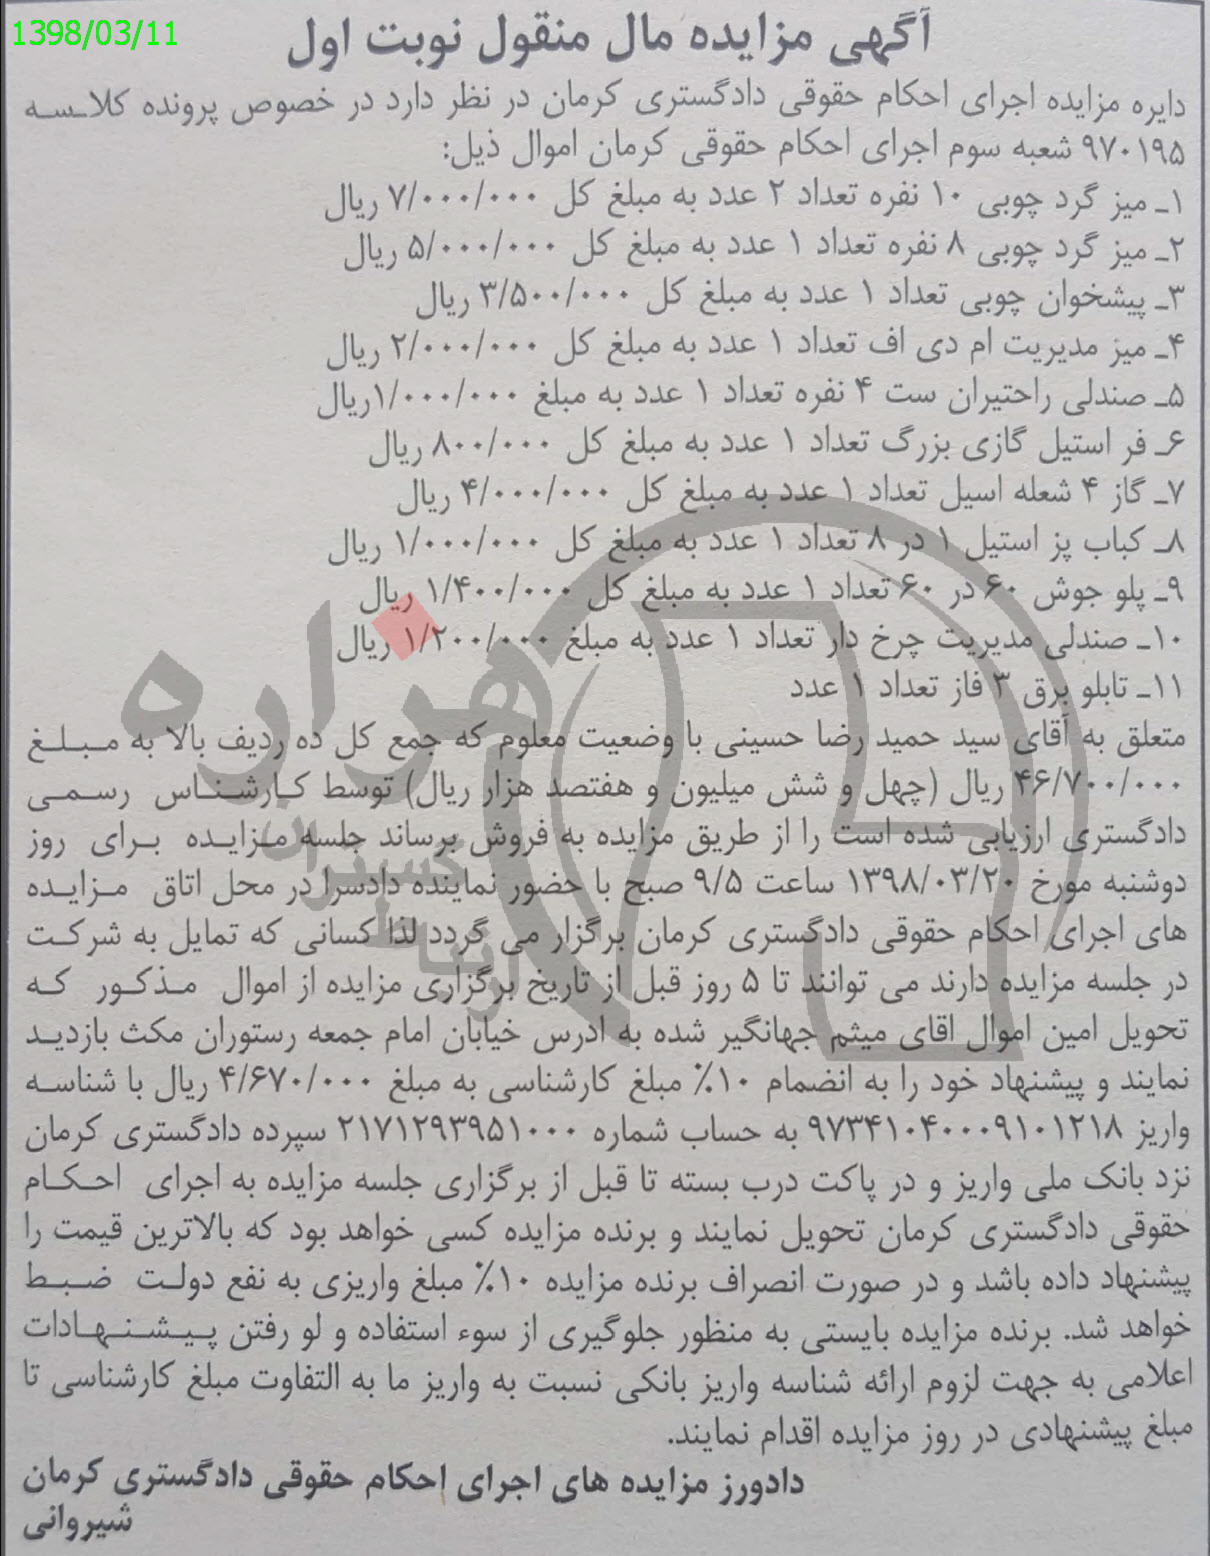 1398/03/11
آگهی مزایده مال منقول نوبت اول
دایره مزایده اجرای احکام حقوقی دادگستری کرمان در نظر دارد در خصوص پرونده کلاسه
۹۷۰۱۹۵ شعبه سوم اجرای احکام حقوقی کرمان اموال ذیل:
۱ـ میز گرد چوبی ۱۰ نفره تعداد ۲ عدد به مبلغ کل ۷/۰۰۰/۰۰۰ ریال
۲ـ میز گرد چوبی ۸ نفره تعداد ۱ عدد به مبلغ کل ۵/۰۰۰/۰۰۰ ریال
۳ـ پیشخوان چوبی تعداد ۱ عدد به مبلغ کل ۳/۵۰۰/۰۰۰ ریال
۴ـ میز مدیریت ام دی اف تعداد ۱ عدد به مبلغ کل ۲/۰۰۰/۰۰۰ ریال
۵ـ صندلی راحتیران ست ۴ نفره تعداد ۱ عدد به مبلغ ۱/۰۰۰/۰۰۰ریال
۶ـ فر استیل گازی بزرگ تعداد ۱ عدد به مبلغ کل ۸۰۰/۰۰۰ ریال
۷ـ گاز ۴ شعله اسیل تعداد ۱ عدد به مبلغ کل ۴/۰۰۰/۰۰۰ ریال
۸ـ کباب پز استیل ۱ در ۸ تعداد ۱ عدد به مبلغ کل ۱/۰۰۰/۰۰۰ ریال
۹ـ پلو جوش ۶۰ در ۶۰ تعداد ۱ عدد به مبلغ کل ۱/۴۰۰/۰۰۰ ریال
۱۰ـ صندلی مدیریت چرخ دار تعداد ۱ عدد به مبلغ ۱/۲۰۰/۰۰۰ ریال
۱۱ـ تابلو برق ۳ فاز تعداد ۱ عدد
متعلق به آقای سید حمید رضا حسینی با وضعیت معلوم که جمع کل ده ردیف بالا به مبلغ
۴۶/۷۰۰/۰۰۰ ریال (چهل و شش میلیون و هفتصد هزار ریال) توسط کارشناس رسمی
دادگستری ارزیابی شده است را از طریق مزایده به فروش برساند جلسه مزایده برای روز
دوشنبه مورخ ۱۳۹۸/۰۳/۲۰ ساعت ۹/۵ صبح با حضور نماینده دادسرا در محل اتاق مزایده
های اجرای احکام حقوقی دادگستری کرمان برگزار می گردد لذا کسانی که تمایل به شرکت
در جلسه مزایده دارند می توانند تا ۵ روز قبل از تاریخ برگزاری مزایده از اموال مذکور که
تحویل امین اموال اقای میثم جهانگیر شده به ادرس خیابان امام جمعه رستوران مکث بازدید
نمایند و پیشنهاد خود را به انضمام ۱۰٪ مبلغ کارشناسی به مبلغ ۴/۶۷۰/۰۰۰ ریال با شناسه
واریز ۹۷۳۴۱۰۴۰۰۰۹۱۰۱۲۱۸ به حساب شماره ۲۱۷۱۲۹۳۹۵۱۰۰۰ سپرده دادگستری کرمان
نزد بانک ملی واریز و در پاکت درب بسته تا قبل از برگزاری جلسه مزایده به اجرای احکام
حقوقی دادگستری کرمان تحویل نمایند و برنده مزایده کسی خواهد بود که بالاترین قیمت را
پیشنهاد داده باشد و در صورت انصراف برنده مزایده ۱۰٪ مبلغ واریزی به نفع دولت ضبط
خواهد شد. برنده مزایده بایستی به منظور جلوگیری از سوء استفاده و لو رفتن پیشنهادات
اعلامی به جهت لزوم ارائه شناسه واریز بانکی نسبت به واریز ما به التفاوت مبلغ کارشناسی تا
مبلغ پیشنهادی در روز مزایده اقدام نمایند.
دادورز مزایده های اجرای احکام حقوقی دادگستری کرمان
شیروانی
هزاره